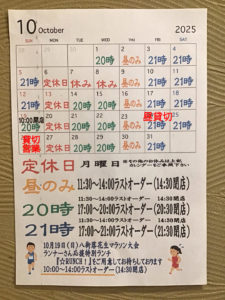 10 October 2025
SUN MON TUE WED THU FRI SAT
1 2 3 4
20時 昼のみ 21時 21時
5 6 7 8 9 10 11
21時 定休日 休み 休み 昼のみ 21時 21時
12 13 14 15 16 17 18
21時 定休日 20時 20時 昼のみ 21時 21時
19 20 21 22 23 25
10:00開店 定休日 20時 20時 昼のみ 貸切 21時
貸切
営業 定休日 20時 20時 昼のみ 21時
定休日 月曜日
昼のみ 11:30~14:00ラストオーダー(14:30閉店)
20時 17:00~20:00ラストオーダー(20:30閉店)
21時 17:00~21:00ラストオーダー(21:30閉店)
10月19日(日)八街落花生マラソン大会
ランナーさん応援特別ランチ
をご用意してお待ちしております
10:00~14:00ラストオーダー(14:30閉店)